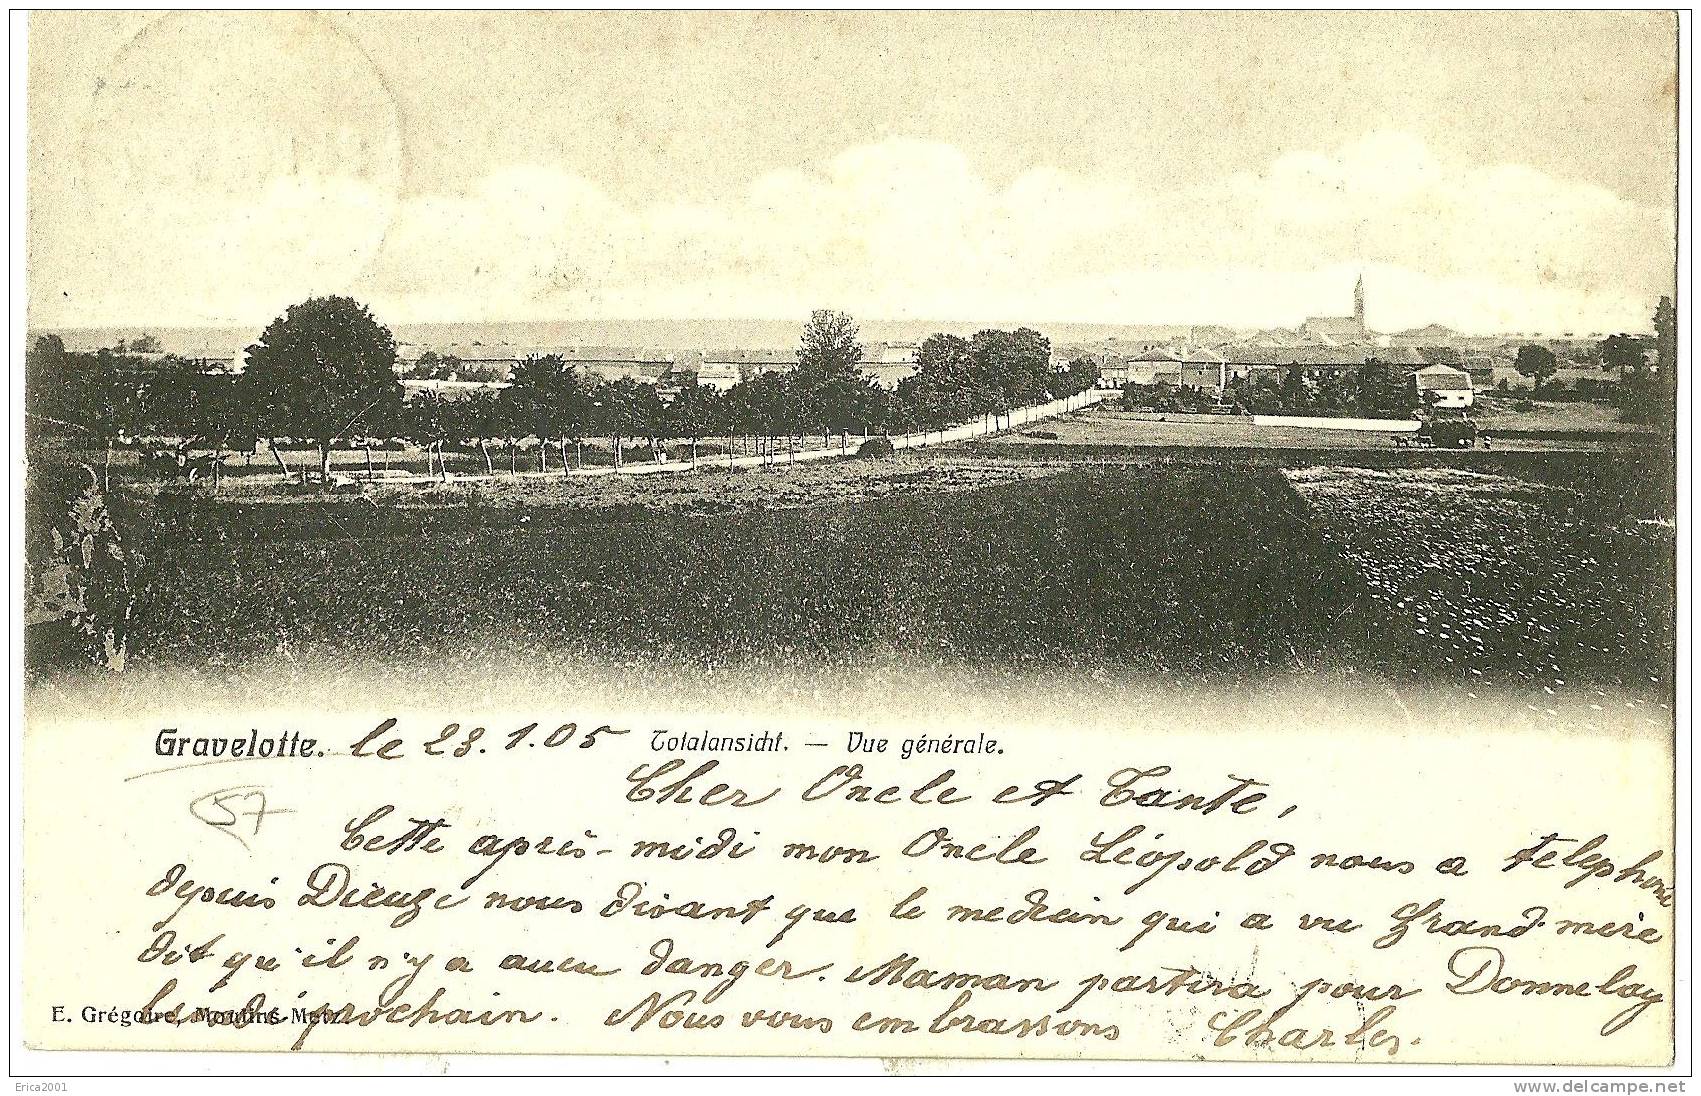 Gravelotte. le 23.1.05 Totalansicht. — Vue générale.
57
Cher Oncle et Tante,
Cette après-midi mon Oncle Léopold nous a telephoné
depuis Dieuze nous disant que le medecin qui a vu Grand-mère
dit qu'il n'y a aucu danger. Maman partira pour Donnelay
prochain. Nous vous embrassons Charles.
E. Grégoire, Moulins-Metz.
Erica2001
www.delcampe.net